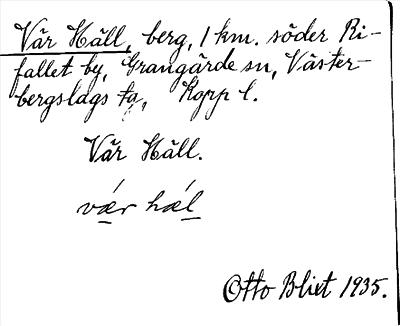 Vår Häll, berg, 1 km. söder Ri-
fallet by, Grangärde sn, Väster-
bergslags tg, Kopp l.
Vår Häll.
vær hæl
Otto Blixt 1935.